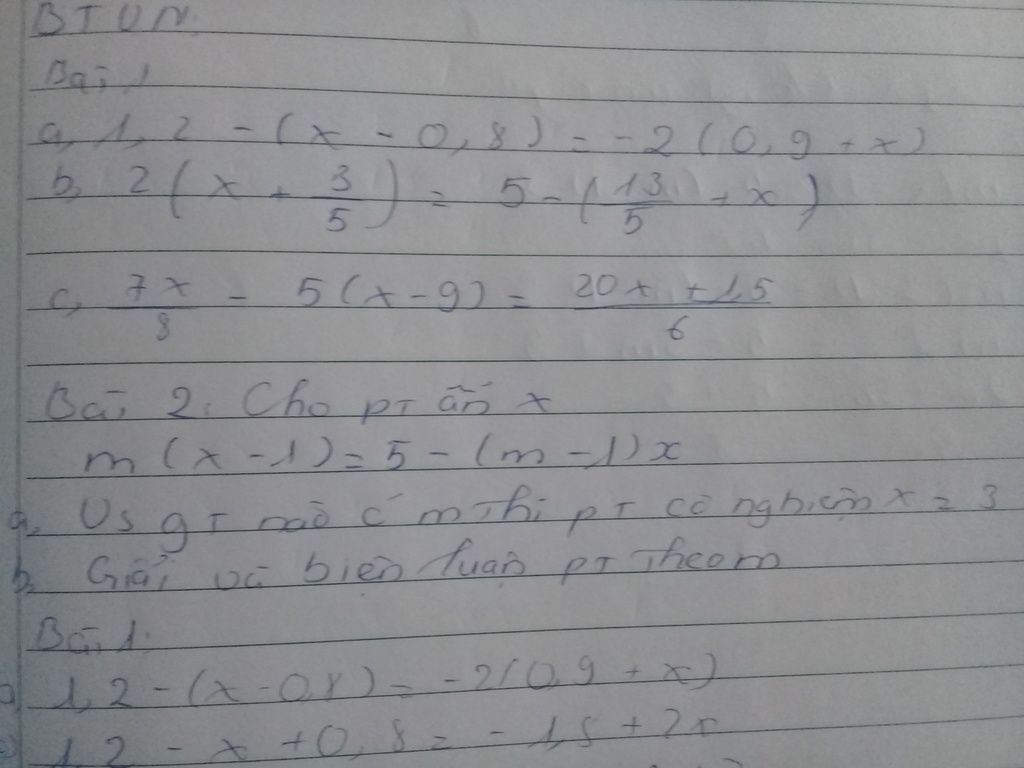 BTVN.
Bài 1
a, 1,2 - (x - 0,8) = -2(0,9 + x)
b, 2(x + 3/5) = 5 - (13/5 + x)
c, 7x/8 - 5(x-9) = 20x + 1,5/6
Bài 2: Cho pT ẩn x
m(x-1) = 5 - (m-1)x
a. Vs gT nào c m Thì pT có nghiệm x = 3
b. Giải và biện luận pT Theo m
Bài 1:
a, 1,2 - (x-0,8) = -2(0,9 + x)
1,2 - x + 0,8 = - 1,8 + 2x